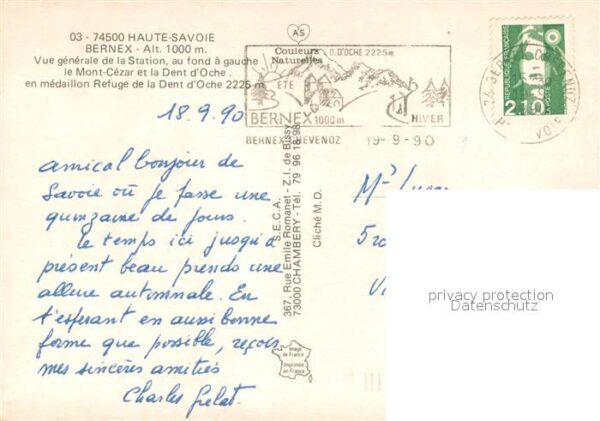 03 - 74500 HAUTE-SAVOIE
BERNEX - Alt. 1000 m.
Vue générale de la Station, au fond à gauche
le Mont-Cézar et la Dent d'Oche.
en médaillon Refuge de la Dent d'Oche 2225 m
AS
Couleurs
Naturelles
D.D'OCHE 2225m
ETE
BERNEX 1000m
HIVER
BERNEX VEVENOZ 19-9-90
REPUBLIQUE FRANÇAISE
2,10
LA POSTE
18.9.90
amical bonjour de
Savoie où je passe une
quinzaine de jours.
le temps ici jusqu'à
présent beau prends une
allure automnale. En
t'esperant en aussi bonne
forme que possible, reçois
mes sincères amitiés
Charles
S.E.C.A.
367, Rue Emile Romanet - Z.I. de Bissy
73000 CHAMBERY - Tél. 79 96 18 98
Cliché M.D.
Image
de France
Imprimée
en France
privacy protection
Datenschutz